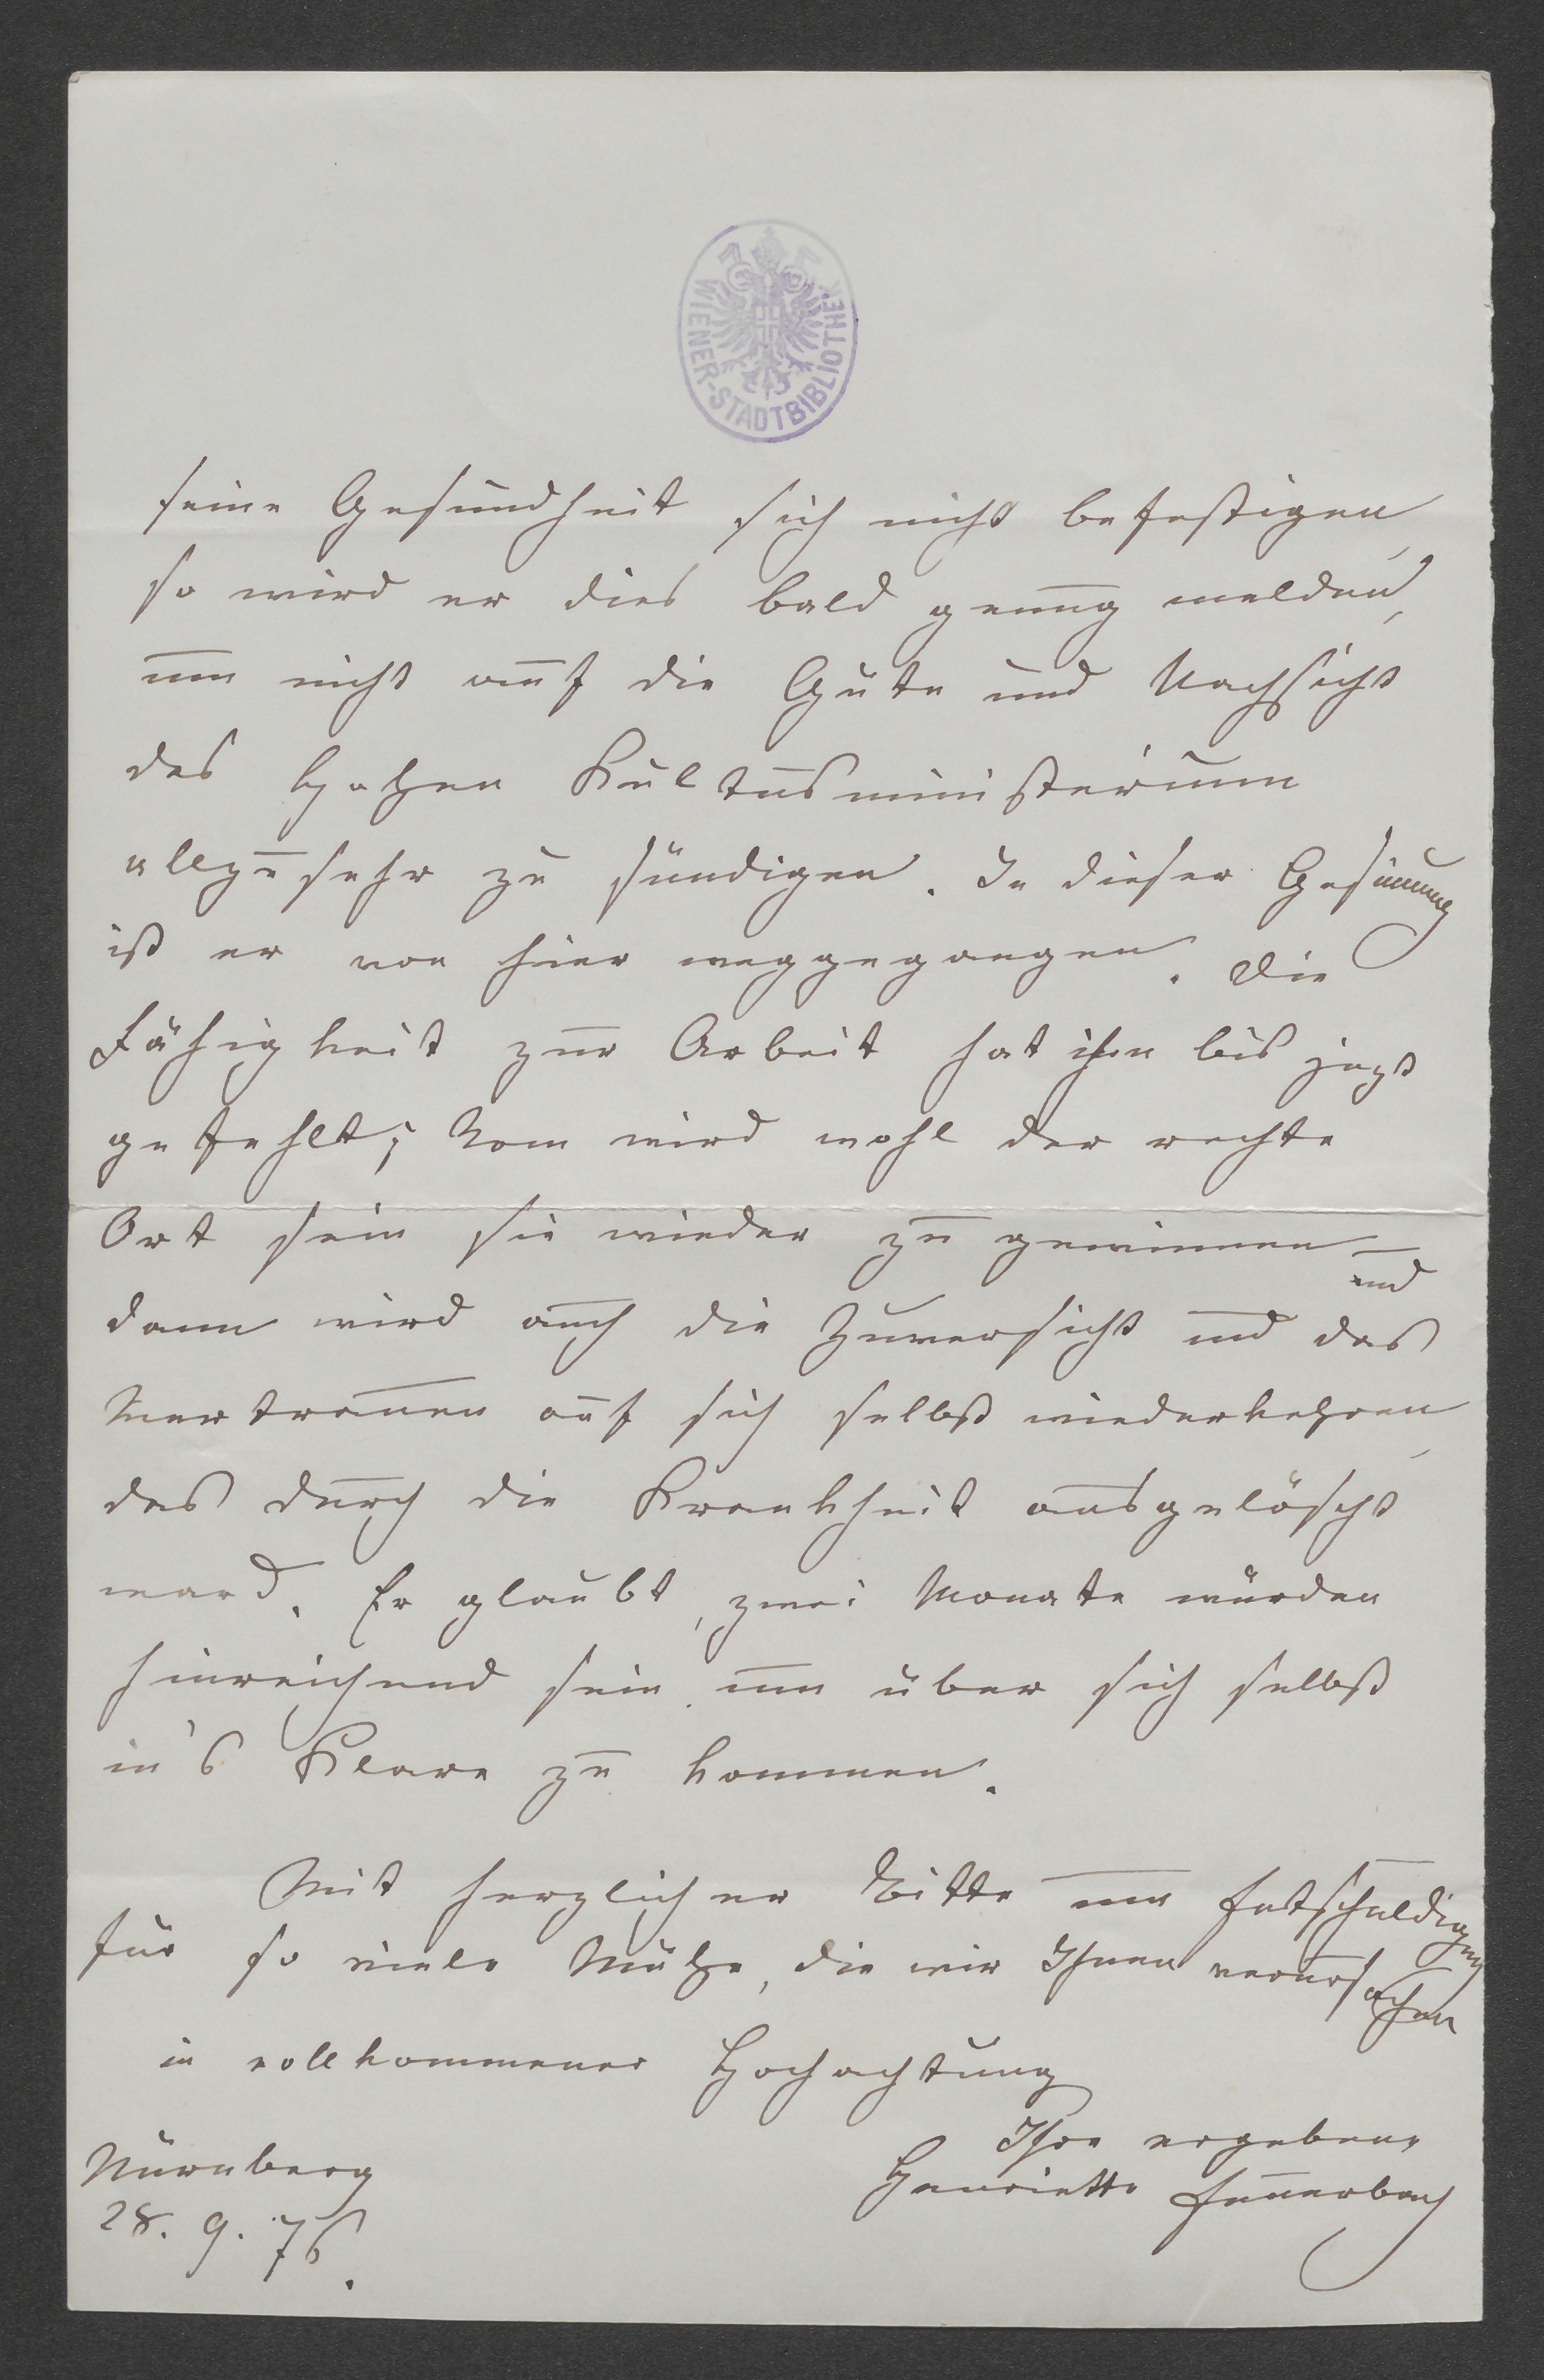 WIENER-STADTBIBLIOTHEK
seine Gesundheit sich nicht befestigen,
so wird er dies bald genug melden,
um nicht auf die Güte und Nachsicht
des hohen Kultusministerium
allzusehr zu sündigen. In dieser Gesinnung
ist er von hier weggegangen. Die
Fähigkeit zur Arbeit hat ihm bis jezt
gefehlt; Rom wird wohl der rechte
Ort sein sie wieder zu gewinnen –
und
dann wird auch die Zuversicht und das
Vertrauen auf sich selbst wiederkehren,
das durch die Krankheit ausgelöscht
ward. Er glaubt, zwei Monate würden
hinreichend sein, um über sich selbst
in's Klare zu kommen.
Mit herzlicher Bitte um Entschuldigung
für so viele Mühe, die wir Ihnen verursachen
in vollkommener Hochachtung
Ihre ergebene
Henriette Feuerbach
Nürnberg
28. 9. 76.